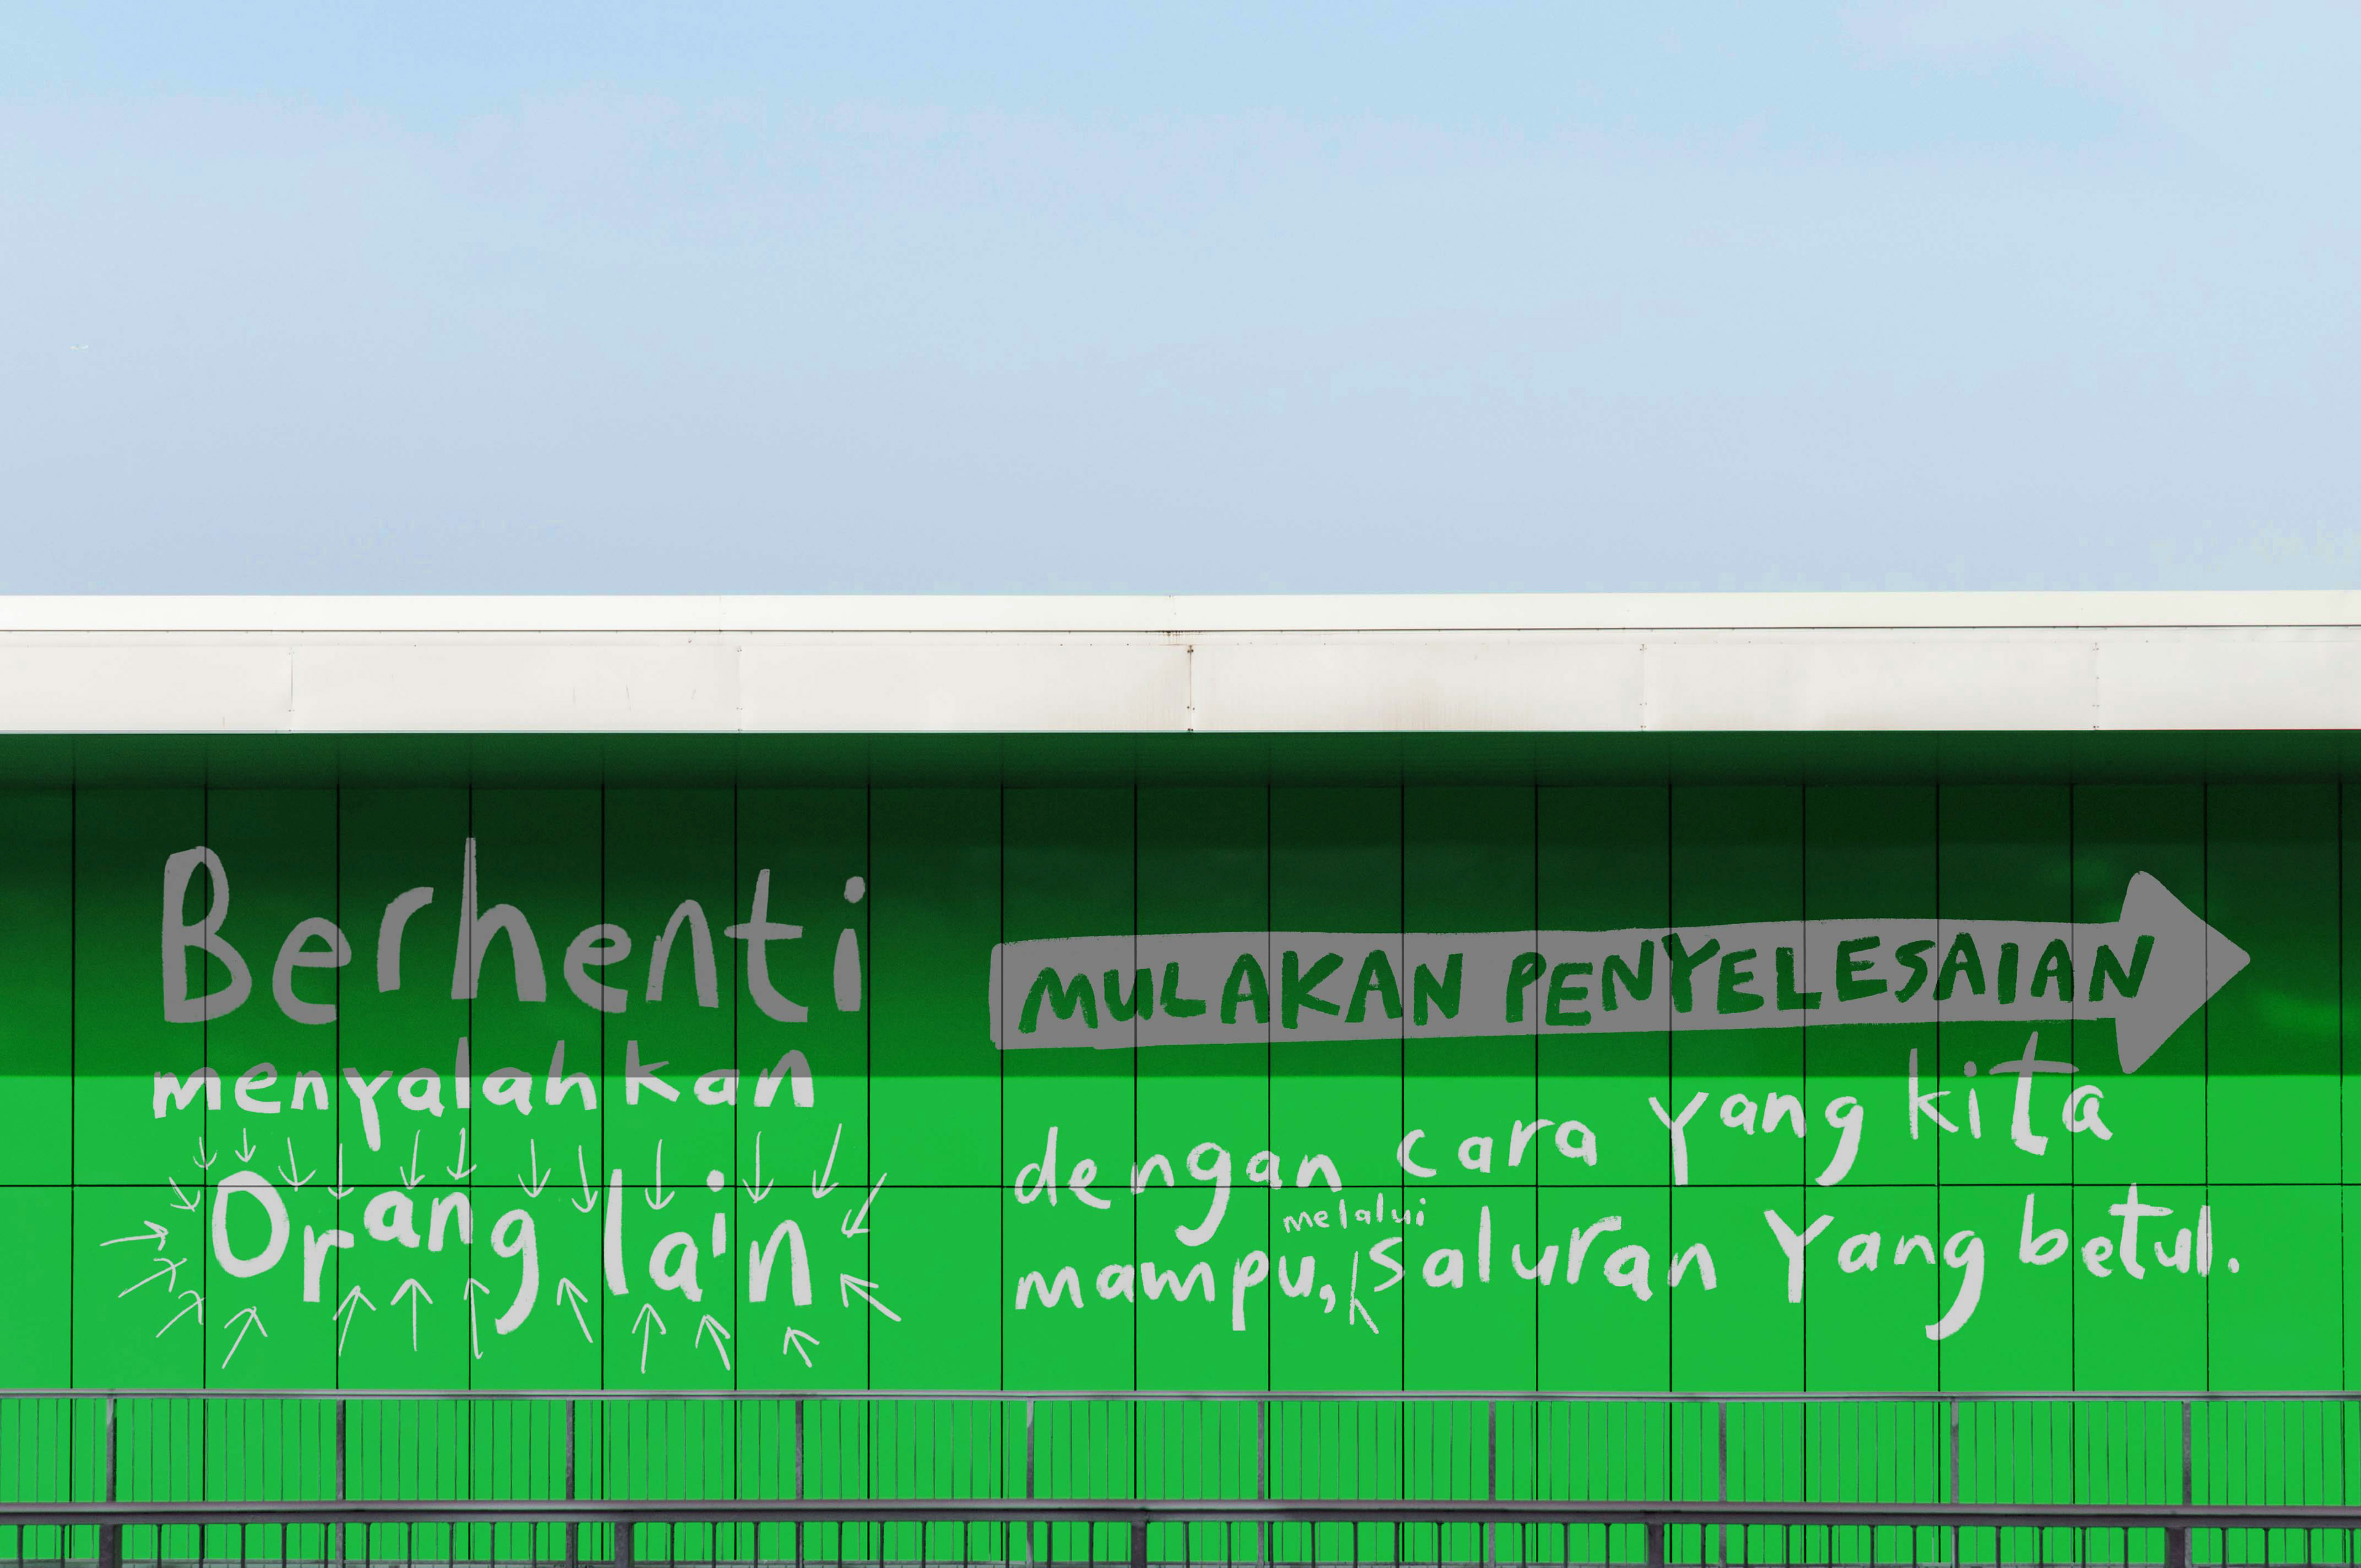 Berhenti
menyalahkan
Orang lain
MULAKAN PENYELESAIAN
dengan cara yang kita
melalui
mampu, saluran yang betul.